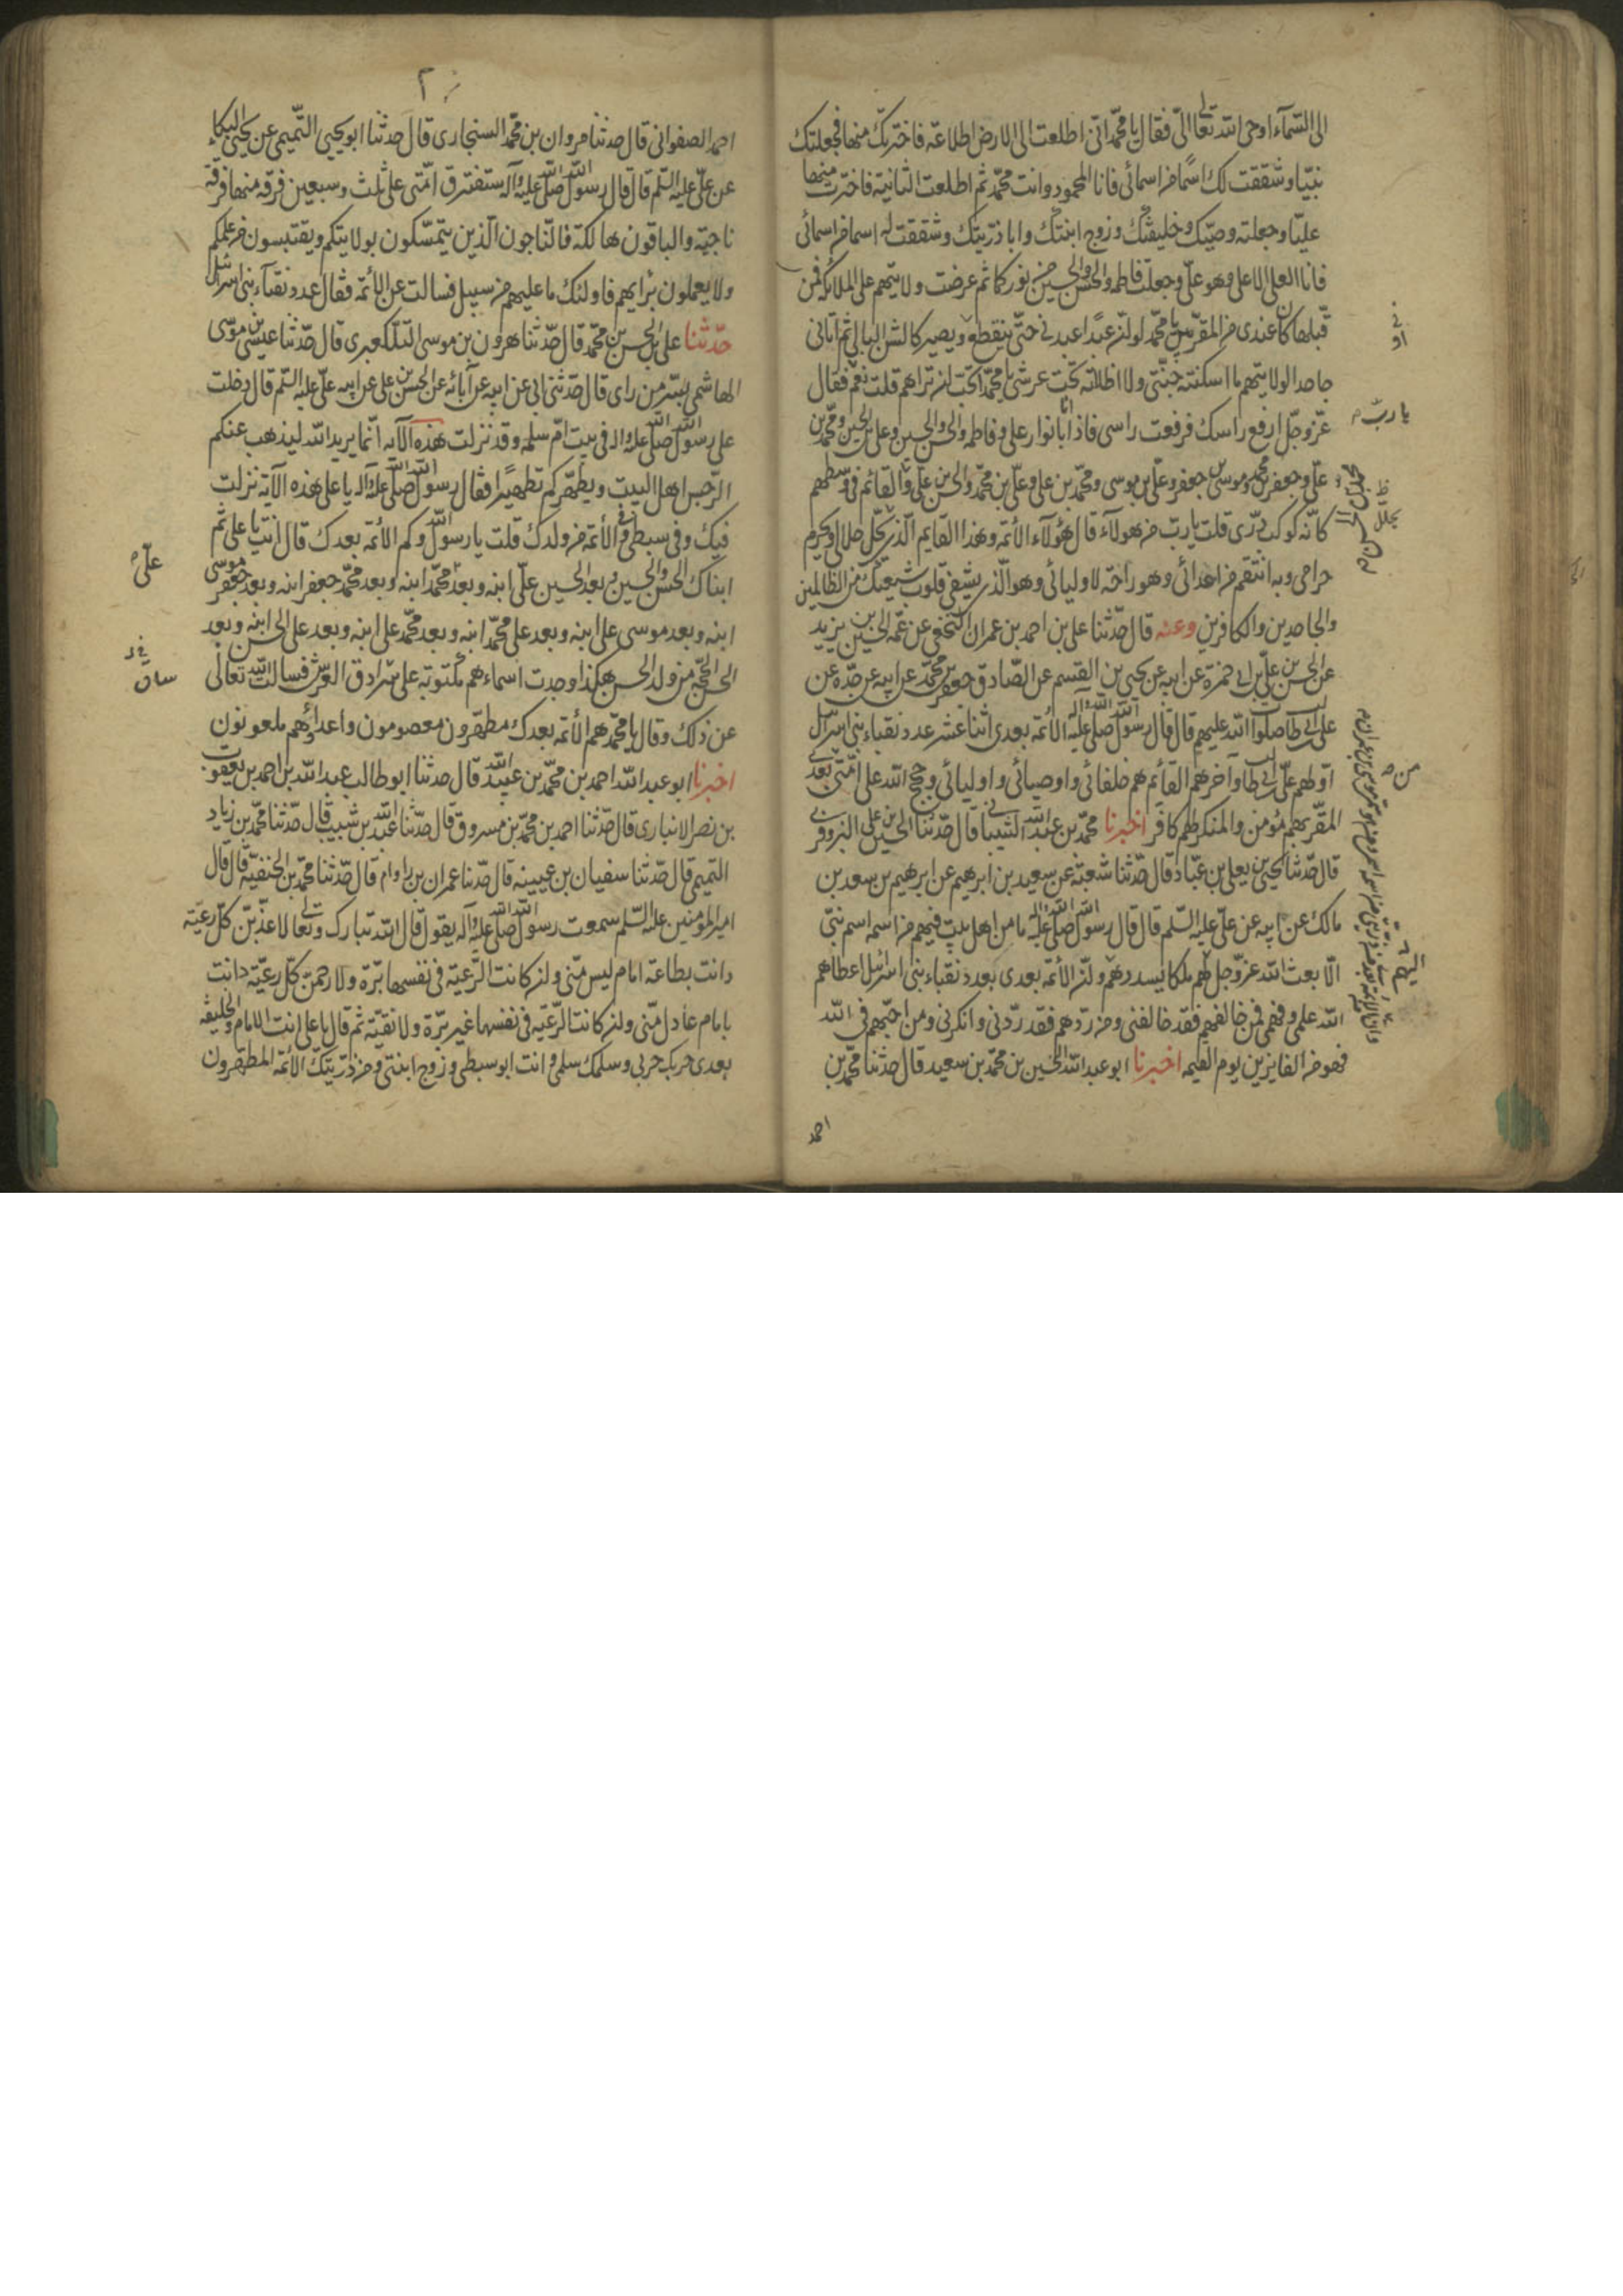 الى السّمآء اوحى الله تعالى الىّ فقال يا محمّد انّى اطلعت الى الارض اطلاعة فاخترتك منها فجعلتك
نبيّا وشققت لك اسمًا من اسمائى فانا المحمود وانت محمّد ثم اطلعت الثانية فاخترت منها
عليّا وجعلته وصيّك وخليفتك وزوج ابنتك وابا ذرّيتك وشققت له اسما من اسمائى
فانا العلى الاعلى وهو علىّ وجعلت فاطمه والحسن والحسين من نوركما ثم عرضت ولايتهم على الملائكة فمن
قبلها كان عندى من المقرّبين يا محمّد لو ان عبدًا عبدنى حتّى ينقطع ويصير كالشن البالى ثم اتانى
جاحدا لولايتهم ما اسكنته جنّتى ولا اظلاته تحت عرشى يا محمّد اتحبّ ان تراهم قلت نعم فقال
عزّ وجلّ ارفع راسك فرفعت راسى فاذا انا بانوار على وفاطمه والحسن والحسين وعلى بن الحسين ومحمّد بن
علىّ وجعفر بن محمد وموسى بن جعفر وعلىّ بن موسى ومحمّد بن على وعلىّ بن محمّد والحسن بن علىّ والقائم فى وسطهم
كانّه كوكب درّى قلت يا ربّ من هولآء قال هؤلآء الأئمّه وهذا القايم الّذى يحلّ حلالى ويحرم
حرامى وبه انتقم من اعدائى وهو راحة لاوليائى وهو الّذى يشفى قلوب شيعتك من الظالمين
والجاحدين والكافرين وعنه قال حدّثنا على بن احمد بن عمران النخعى عن عمّه الحسين بن يزيد
عن الحسن بن علىّ بن ابى حمزة عن ابيه عن يحيى بن القسم عن الصّادق جعفر بن محمّد عن ابيه عن جدّه عن
على بن ابى طالب صلوات الله عليهم قال قال رسول الله صلى الله عليه واله الأئمّه بعدى اثنا عشر عدد نقباء بنى اسرآئيل
اوّلهم علىّ بن ابى طالب وآخرهم القائم هم خلفائى واوصيائى واوليائى وحجج الله على امّتى بعدى
المقرّ بهم مؤمن والمنكر لهم كافر اخبرنا محمّد بن عبد الله الشيبانى قال حدّثنا الحسين بن على البزوفرى
قال حدّثنا يحيى بن يعلى بن عبّاد قال حدّثنا شعبة عن سعيد بن ابرهيم عن ابرهيم بن سعد بن
مالك عن ابيه عن علىّ عليه السّلم قال قال رسول الله صلى الله عليه واله ما من اهل بيت فيهم من اسمه اسم نبىّ
الّا بعث الله عزّ وجل لهم ملكا يسددهم وان الأئمّة بعدى بعدد نقباء بنى اسرائيل اعطاهم
الله علمى وفهمى فمن خالفهم فقد خالفنى ومن ردّهم فقد ردّنى وانكرنى ومن احبّهم فى الله
فهو من الفايزين يوم القيمه اخبرنا ابو عبد الله الحسين بن محمّد بن سعيد قال حدثنا محمّد بن
احمد
يا ربّ
من
اليهم
احمد الصفوانى قال حدثنا مروان بن محمّد السنجارى قال حدثنا ابو يحيى التّميمى عن يحيى البكاء
عن علىّ عليه السّلم قال قال رسول الله صلى الله عليه وآله ستفترق امّتى على ثلث وسبعين فرقه منها فرقة
ناجيّه والباقون هالكة فالنّاجون الّذين يتمسّكون بولايتكم ويقتبسون من علمكم
ولا يعملون برايهم فاولئك ما عليهم من سبيل فسالت عن الأئمّه فقال عدد نقبآء بنى اسرائيل
حدّثنا على بن الحسن بن محمّد قال حدّثنا هرون بن موسى التلعكبرى قال حدّثنا عيسى بن موسى
الهاشمى بسّر من راى قال حدّثنى ابى عن ابيه عن آبائه عن الحسن بن على عن ابيه علىّ عليه السّلم قال دخلت
على رسول الله صلى الله عليه واله فى بيت امّ سلمه وقد نزلت هذه الآيه انّما يريد الله ليذهب عنكم
الرّجس اهل البيت ويطهّركم تطهيرًا فقال رسول الله صلى الله عليه وآله يا على هذه الآيه نزلت
فيك وفى سبطى والأئمّه من ولدك قلت يا رسول الله وكم الأئمّه بعدك قال انت يا على ثم
ابناك الحسن والحسين وبعد الحسين علىّ ابنه وبعد محمّد ابنه وبعد محمّد جعفر ابنه وبعد جعفر موسى
ابنه وبعد موسى على ابنه وبعد على محمّد ابنه وبعد محمّد على ابنه وبعد على الحسن ابنه وبعد
الحسن الحجّه من ولد الحسن هكذا وجدت اسماءهم مكتوبة على سرادق العرش فسالت الله تعالى
عن ذلك وقال يا محمّد هم الأئمّه بعدك مطهّرون معصومون واعداؤهم ملعونون
اخبرنا ابو عبد الله احمد بن محمّد بن عبيد الله قال حدثنا ابو طالب عبيد الله بن احمد بن يعقوب
بن نصر الانبارى قال حدّثنا احمد بن محمّد بن مسروق قال حدّثنا عبد الله بن شبيب قال حدّثنا محمّد بن زياد
التميمى قال حدّثنا سفيان بن عيينه قال حدّثنا عمران بن داوام قال حدّثنا محمّد بن الحنفيّه قال قال
امير المؤمنين عليه السّلم سمعت رسول الله صلى الله عليه وآله يقول قال الله تبارك وتعالى لاعذّبنّ كلّ رعيّة
دانت بطاعة امام ليس منّى وان كانت الرّعيّة فى نفسها برّة ولارحمنّ كلّ رعيّة دانت
بامام عادل منّى وان كانت الرّعيّه فى نفسها غير برّة ولا نقيّة ثم قال يا على انت الامام والخليفه
بعدى حربك حربى وسلمك سلمى وانت ابو سبطى وزوج ابنتى ومن ذرّيتك الأئمّه المطهّرون
علىّ